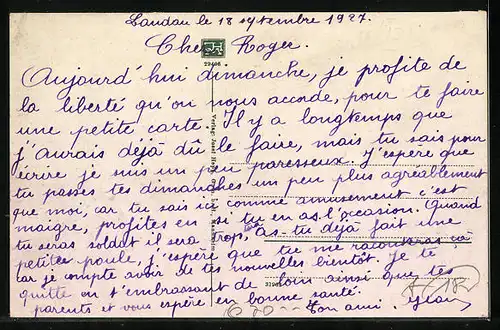 Landau le 18 septembre 1927.
Cher Roger.
22406
Aujourd'hui dimanche, je profite de
la liberté qu'on nous accorde, pour te faire
une petite carte. Il y a longtemps que
j'aurais déjà dû le faire, mais tu sais pour
écrire je suis un peu paresseux. J'espère que
tu passes tes dimanches un peu plus agréablement
que moi, car tu sais ici comme amusement c'est
maigre, profites en si tu en as l'occasion. Quand
tu seras soldat il sera trop tard. As-tu déjà fait une
petite poule, j'espère que tu me raconteras ça
car je compte avoir de tes nouvelles bientôt. Je te
quitte en t'embrassant de loin ainsi que tes
parents et vous espère en bonne santé.
Ton ami Jean